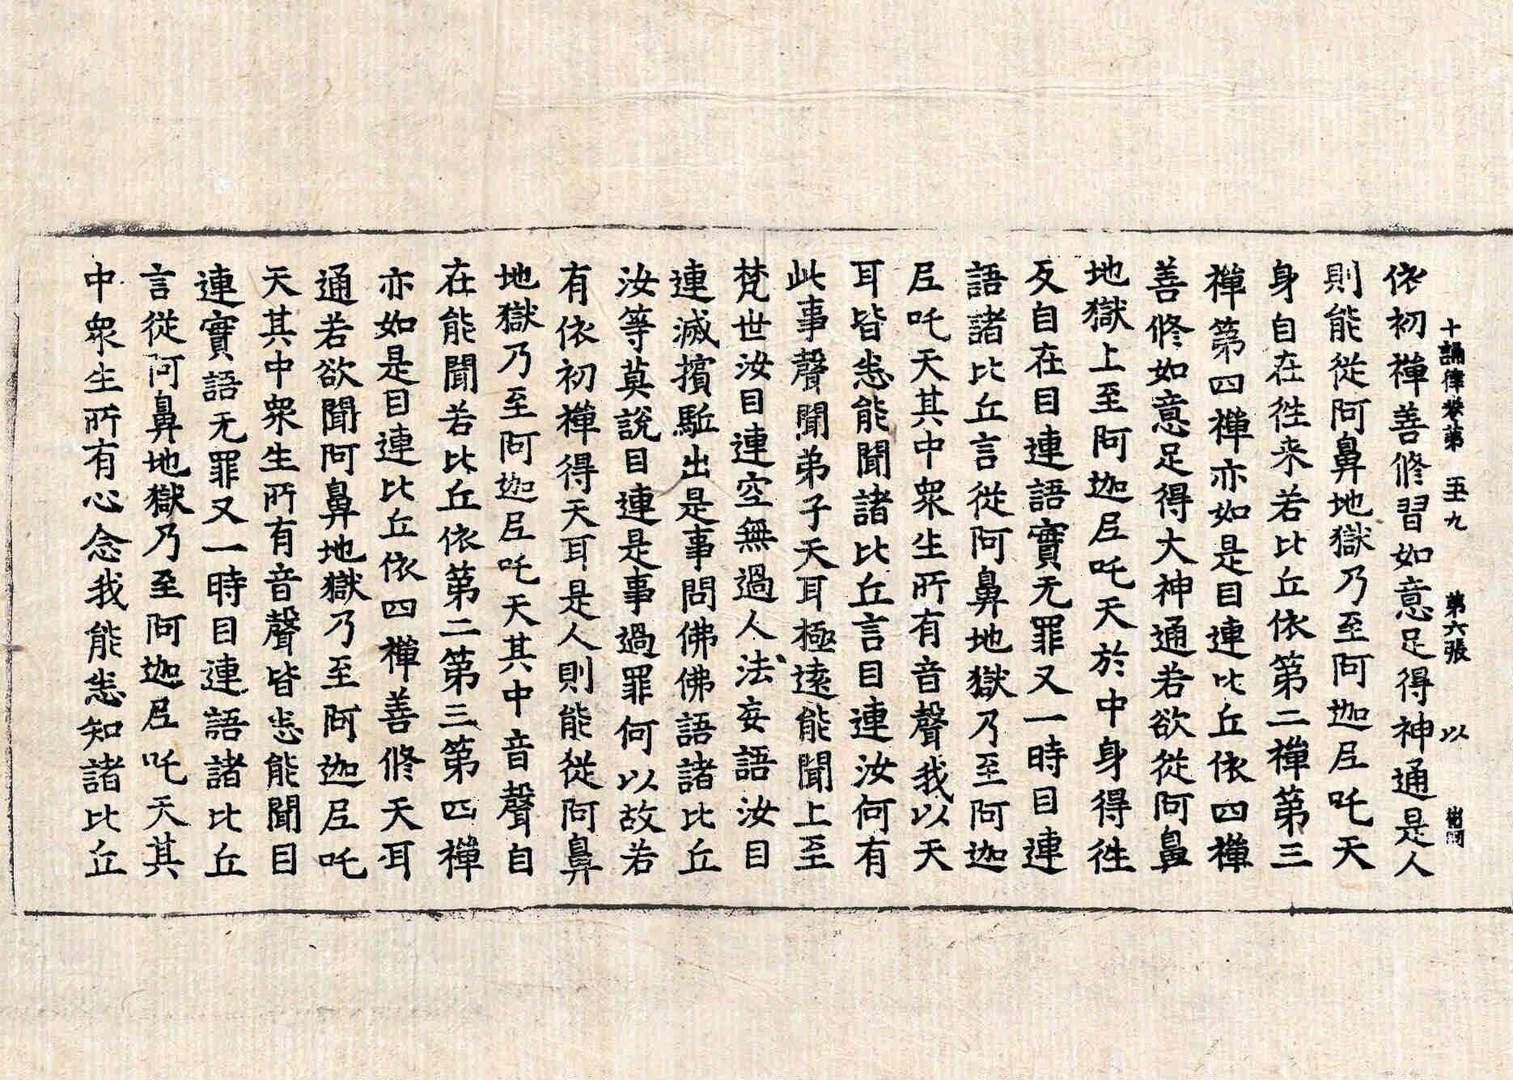 十誦律卷第五十九 第六張 以
依初禅善修習如意足得神通是人
則能從阿鼻地獄乃至阿迦㞐吒天
身自在徃来若比丘依第二禅第三
禅第四禅亦如是目連比丘依四禅
善修如意足得大神通若欲從阿鼻
地獄上至阿迦㞐吒天於中身得徃
反自在目連語實无罪又一時目連
語諸比丘言從阿鼻地獄乃至阿迦
㞐吒天其中衆生所有音聲我以天
耳皆悉能聞諸比丘言目連汝何有
此事聲聞弟子天耳極遠能聞上至
梵世汝目連空無過人法妄語汝目
連滅擯駈出是事問佛佛語諸比丘
汝等莫說目連是事過罪何以故若
有依初禅得天耳是人則能從阿鼻
地獄乃至阿迦㞐吒天其中音聲自
在能聞若比丘依第二第三第四禅
亦如是目連比丘依四禅善修天耳
通若欲聞阿鼻地獄乃至阿迦㞐吒
天其中衆生所有音聲皆悉能聞目
連實語无罪又一時目連語諸比丘
言從阿鼻地獄乃至阿迦㞐吒天其
中衆生所有心念我能悉知諸比丘